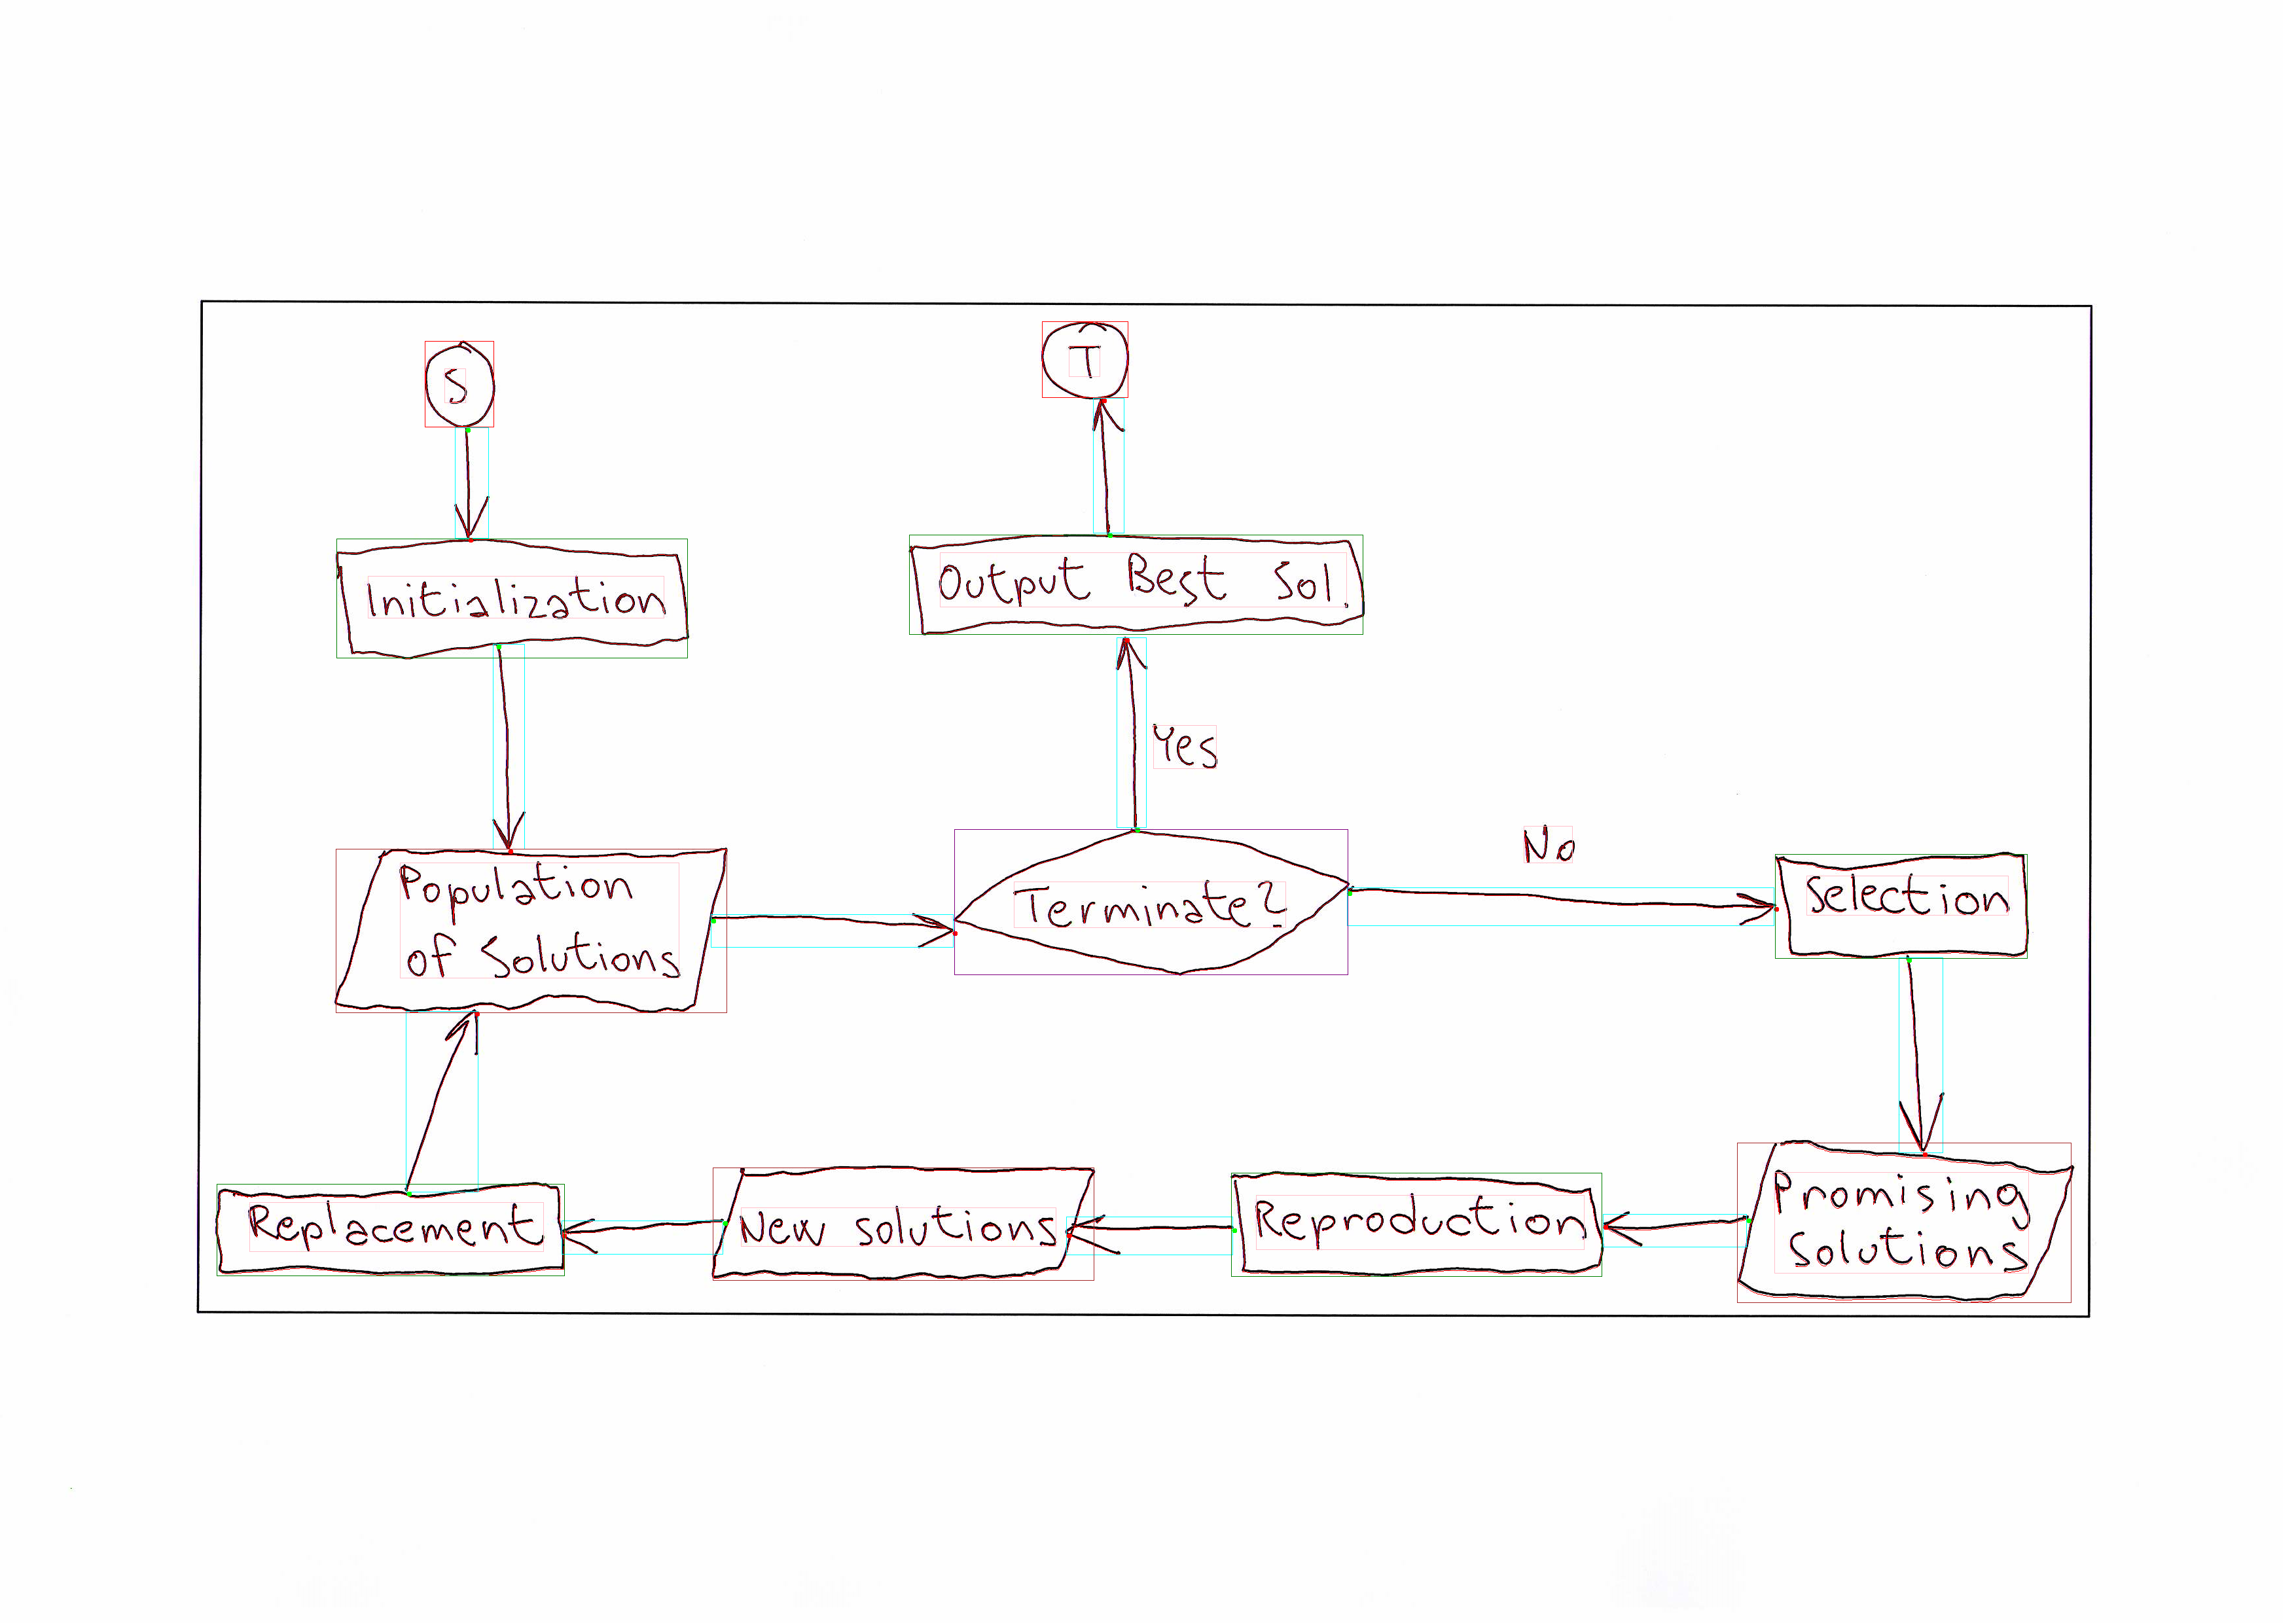 S
T
Initialization
Output Best Sol.
Yes
Population
of Solutions
Terminate?
No
Selection
Replacement
New solutions
Reproduction
Promising
Solutions